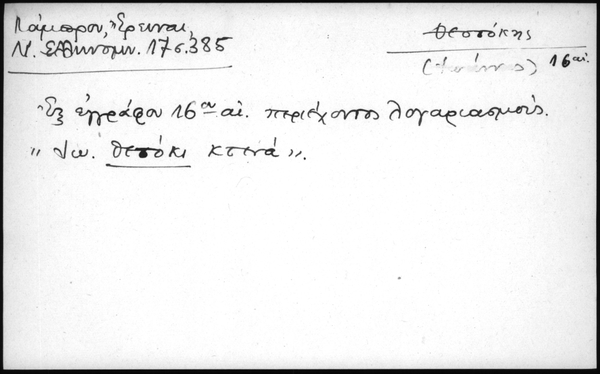 Λάμπρου, Ἔρευναι,
Ν. Ἑλληνομν. 17 σ. 385
Θεοτόκης
(Ἰωάννης) 16 αἰ.
Ἐξ ἐγγράφου 16ου αἰ. περιέχοντος λογαριασμούς.
"Ἰω. Θεοτόκι κτενά".